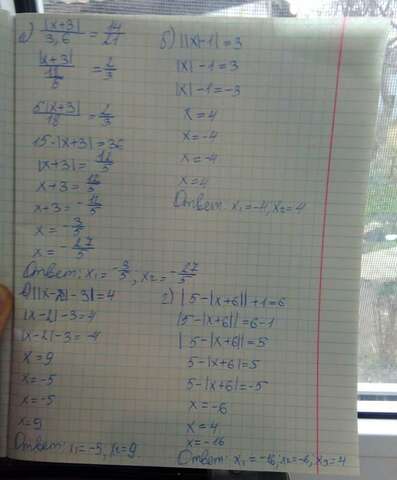 а) |x+3|/3,6 = 14/21
|x+3|/(18/5) = 2/3
5|x+3|/18 = 2/3
15·|x+3| = 36
|x+3| = 12/5
x+3 = 12/5
x+3 = -12/5
x = -3/5
x = -27/5
Ответ: x₁ = -3/5, x₂ = -27/5
б) ||x|-1| = 3
|x|-1 = 3
|x|-1 = -3
x = 4
x = -4
x = -4
x = 4
Ответ: x₁ = -4, x₂ = 4
в) ||x-2|-3| = 4
|x-2|-3 = 4
|x-2|-3 = -4
x = 9
x = -5
x = -5
x = 9
Ответ: x₁ = -5, x₂ = 9.
г) |5-|x+6||+1 = 6
|5-|x+6|| = 6-1
|5-|x+6|| = 5
5-|x+6| = 5
5-|x+6| = -5
x = -6
x = 4
x = -16
Ответ: x₁ = -16, x₂ = -6, x₃ = 4